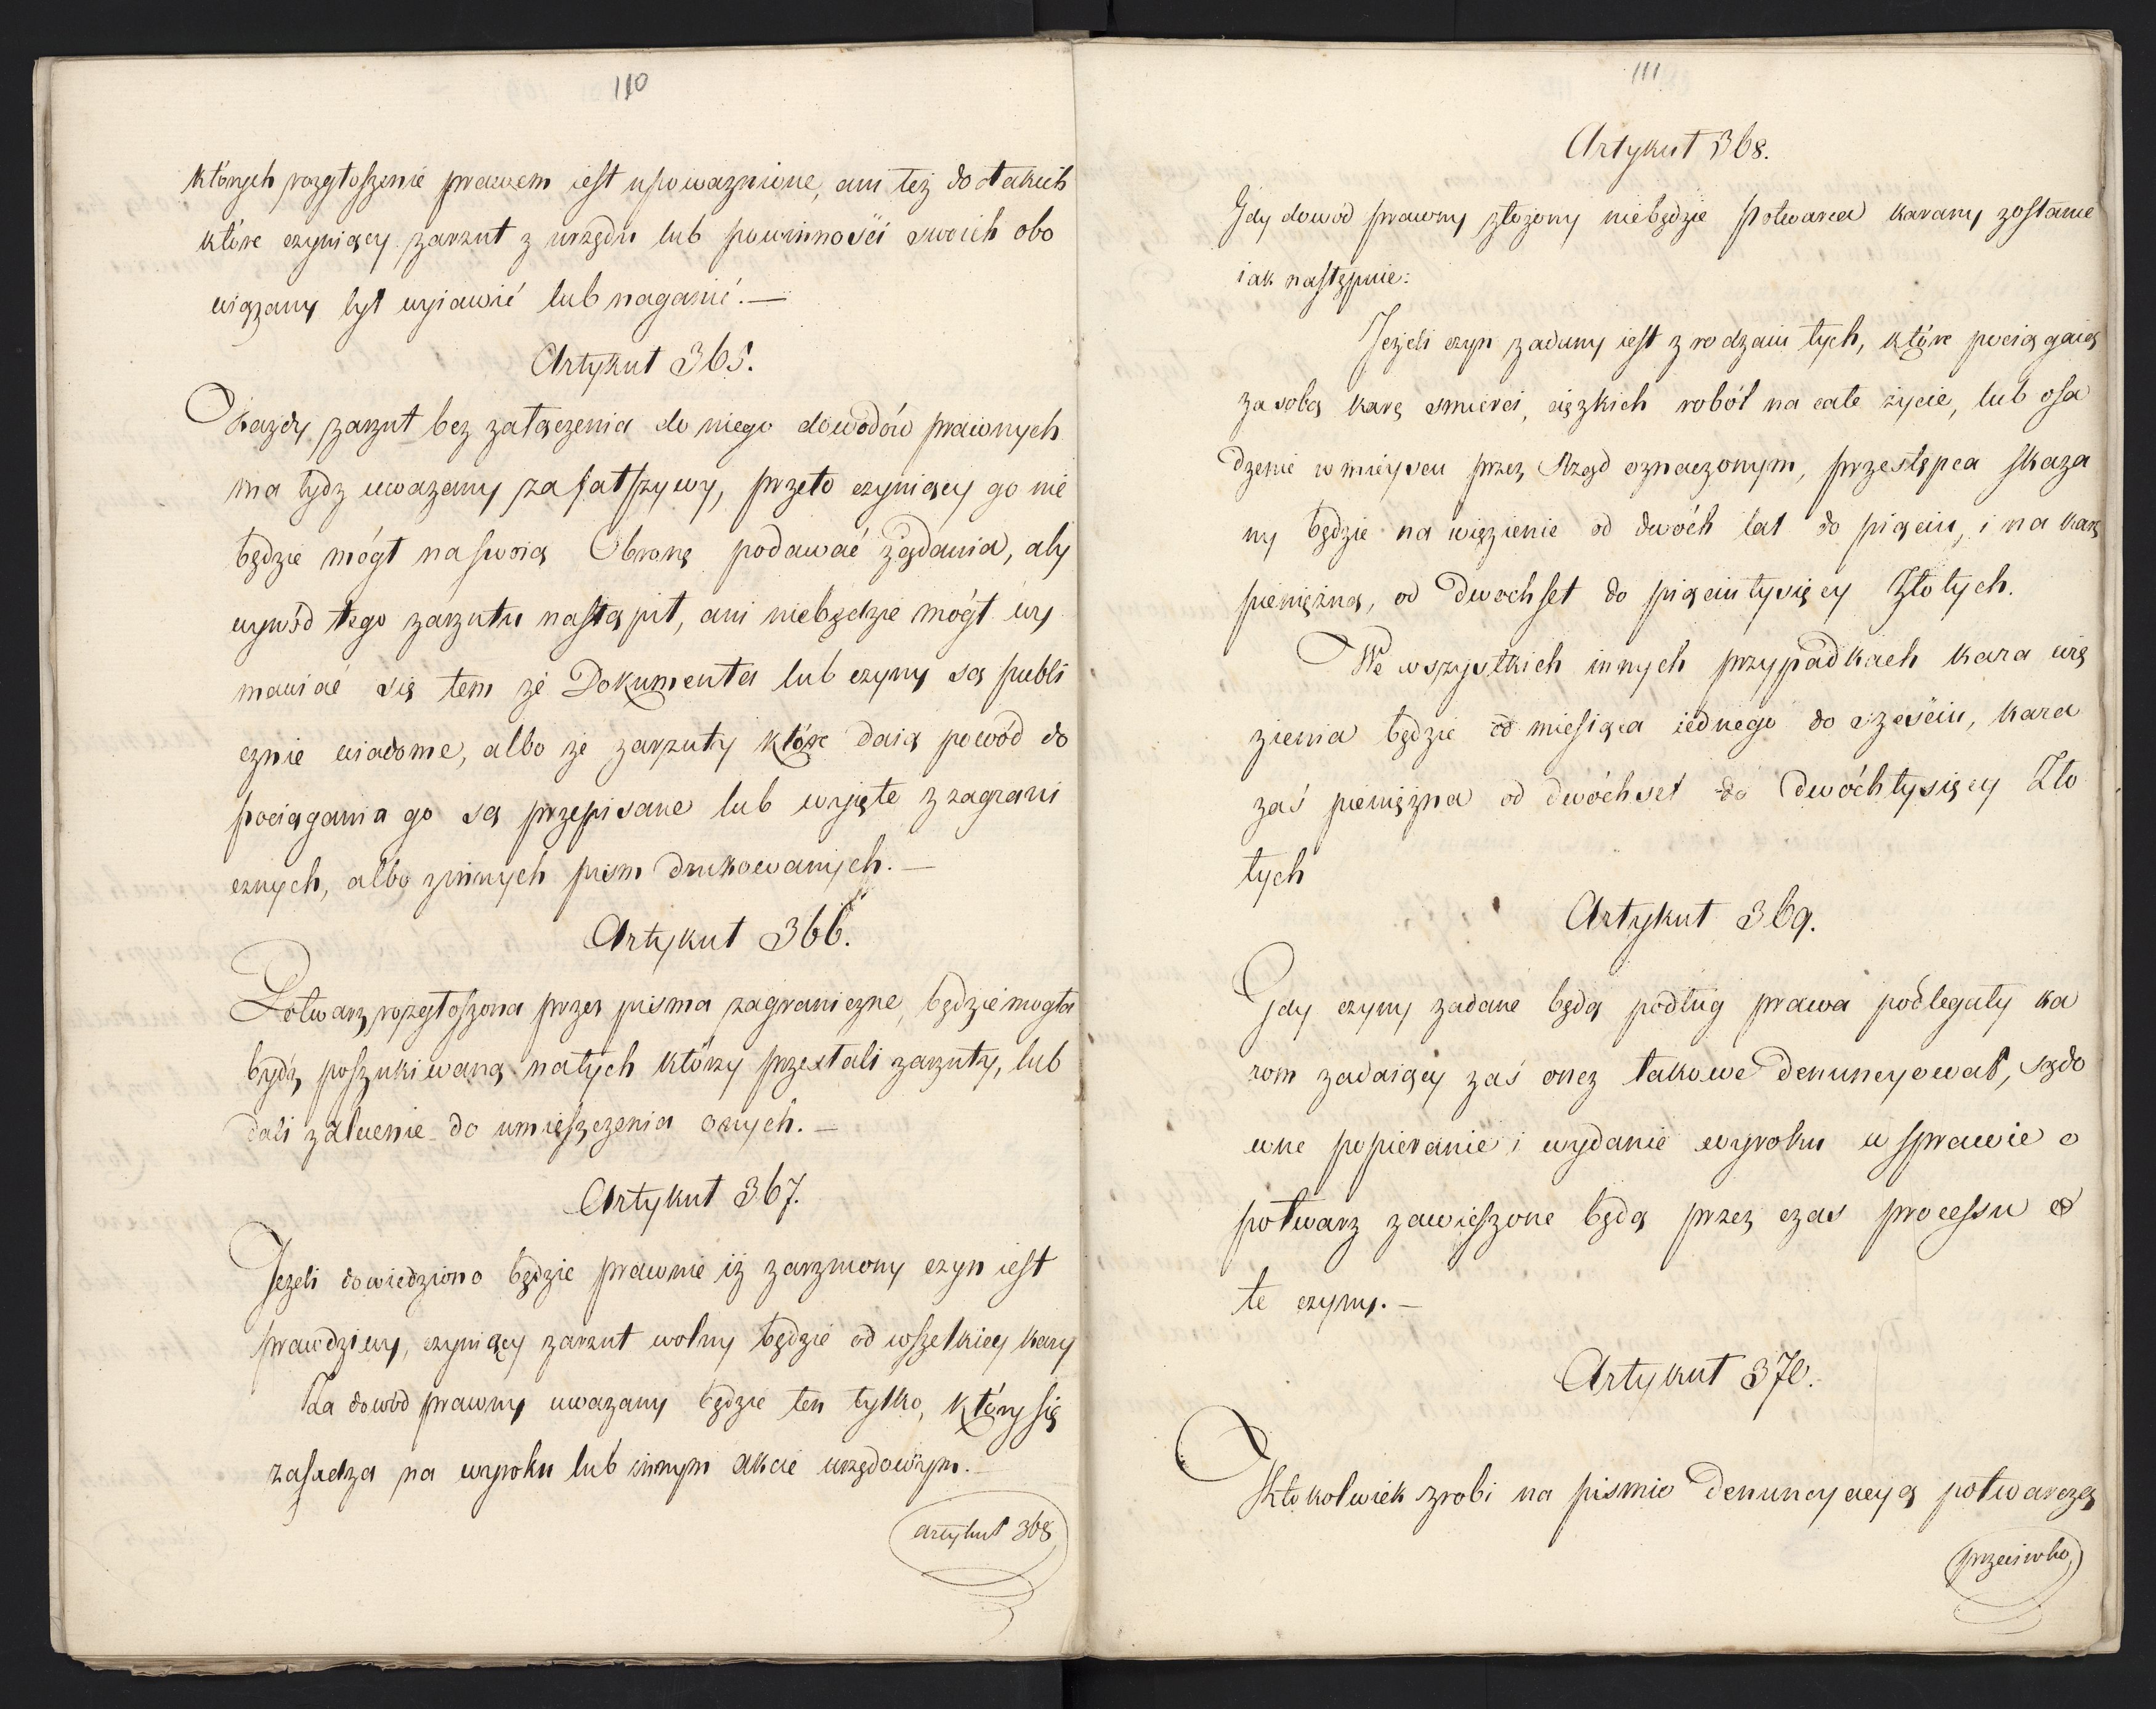 110
których rozgłoszenie prawem iest upoważnione, ani też do takich
które czyniący zarzut z urzędu lub powinności swoich obo
wiązany był wyiawić lub naganić.—
Artykuł 365.
Każdy zarzut bez załączenia do niego dowodów prawnych
ma bydz uważany za fałszywy, przeto czyniący go nie
będzie mógł na swoią Obronę podawać żądania, aby
wywód tego zarzutu nastąpił, ani niebędzie mógł wy
mawiać się tem że Dokumenta lub czyny są publi
cznie wiadome, albo że zarzuty które daią powód do
pociągania go są przepisane lub wyięte z zagrani
cznych, albo zinnych pism drukowanych.—
Artykuł 366.
Potwarz rozgłoszona przez pisma zagraniczne, będzie mogła
bydź poszukiwaną natych którzy przesłali zarzuty, lub
dali zalecenie do umieszczenia onych.—
Artykuł 367.
Jeżeli dowiedziono będzie prawnie iż zarzucony czyn iest
prawdziwy, czyniący zarzut wolny będzie od wszelkiey kary
Za dowód prawny uważany będzie ten tylko, który się
zasadza na wyroku lub innym akcie urzędowym.—
artykuł 368
111
Artykuł 368.
Gdy dowód prawny złożony niebędzie potwarca karany zostanie
iak następnie:
Jeżeli czyn zadany iest z rodzaiu tych, które pociągaią
za sobą karę smierci, ciężkich robót na całe życie, lub osa
dzenie w mieyscu przez Rząd oznaczonym, przestępca skaza
ny będzie na więzienie od dwóch lat do pięciu, i na karę
pieniężną, od dwochset do pięciutysięcy Złotych.
We wszystkich innych przypadkach kara wię
zienia będzie od miesiąca iednego do sześciu, kara
zaś pieniężna od dwóchset do dwóchtysięcy Zło
tych
Artykuł 369.
Gdy czyny zadane będą podług prawa podlegały ka
rom zadaiący zaś onez takowe denuncyował, sądo
wne popieranie i wydanie wyroku w sprawie o
potwarz zawieszone będą przez czas processu o
te czyny.—
Artykuł 370.
Ktokolwiek zrobi na pismie denuncyacyą potwarczą
przeciwko